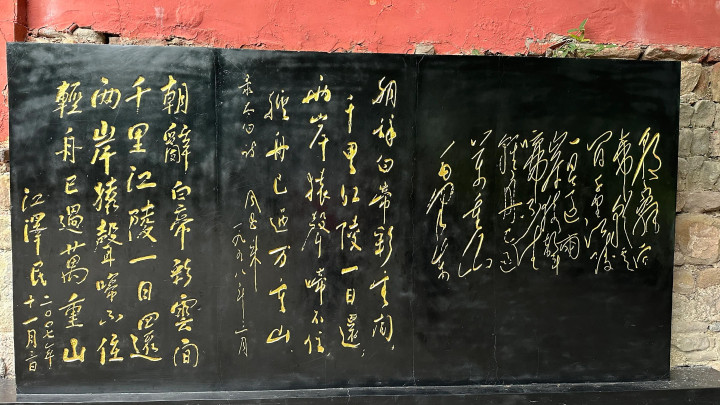 朝辞白
帝彩云
间千里江陵
一日还两
岸猿声
啼不住
轻舟已过
万重山
毛泽东
朝辞白帝彩云间，
千里江陵一日還，
两岸猿聲啼不住，
轻舟已过万重山。
录李白诗 周恩来
一九五八年三月
朝辭白帝彩雲間
千里江陵一日還
两岸猿聲啼不住
輕舟已過萬重山
江澤民
二〇〇七年
十一月